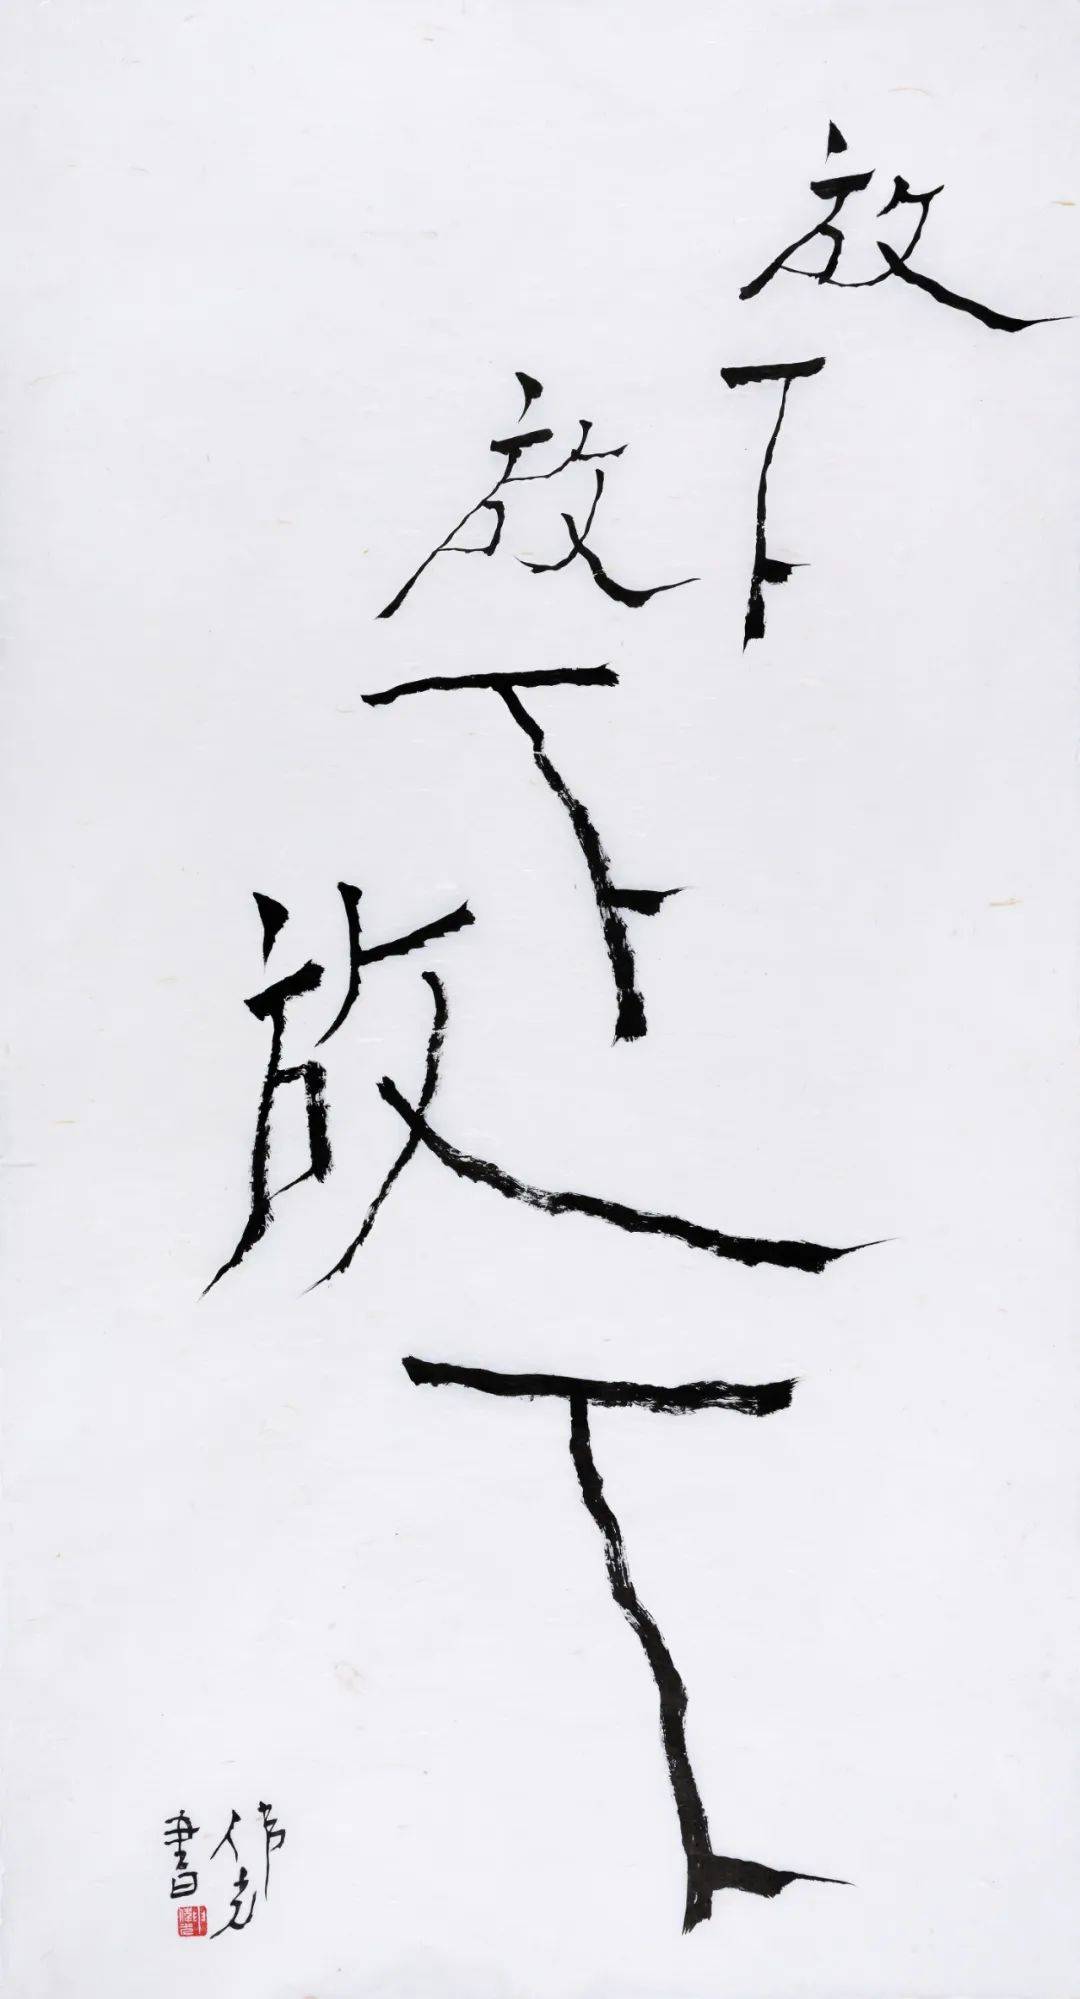 放下
放下
放下
伟光
書